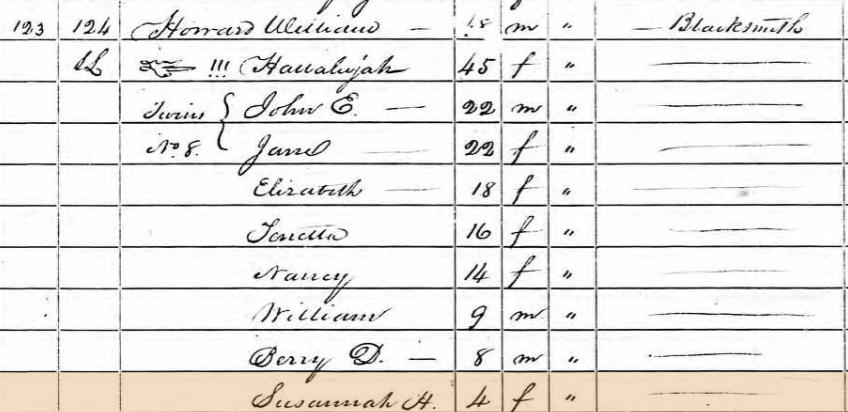 123 124 Howard William — 18 m " — Blacksmith
!!! Hallalujah 45 f " —
Twins { John E. — 22 m " —
No 8. Jane — 22 f " —
Elizabeth — 18 f " —
16 f " —
Nancy 14 f " —
William 9 m " —
Berry D. — 8 m " —
Susannah H. 4 f " —